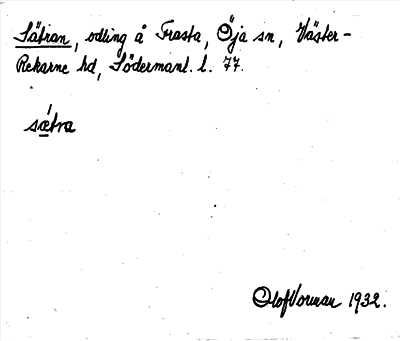 Sätran, odling å Trasta, Öja sn, Väster-
Rekarne hd, Södermanl. l. 77.
sǽtra
Olof Vorman 1932.